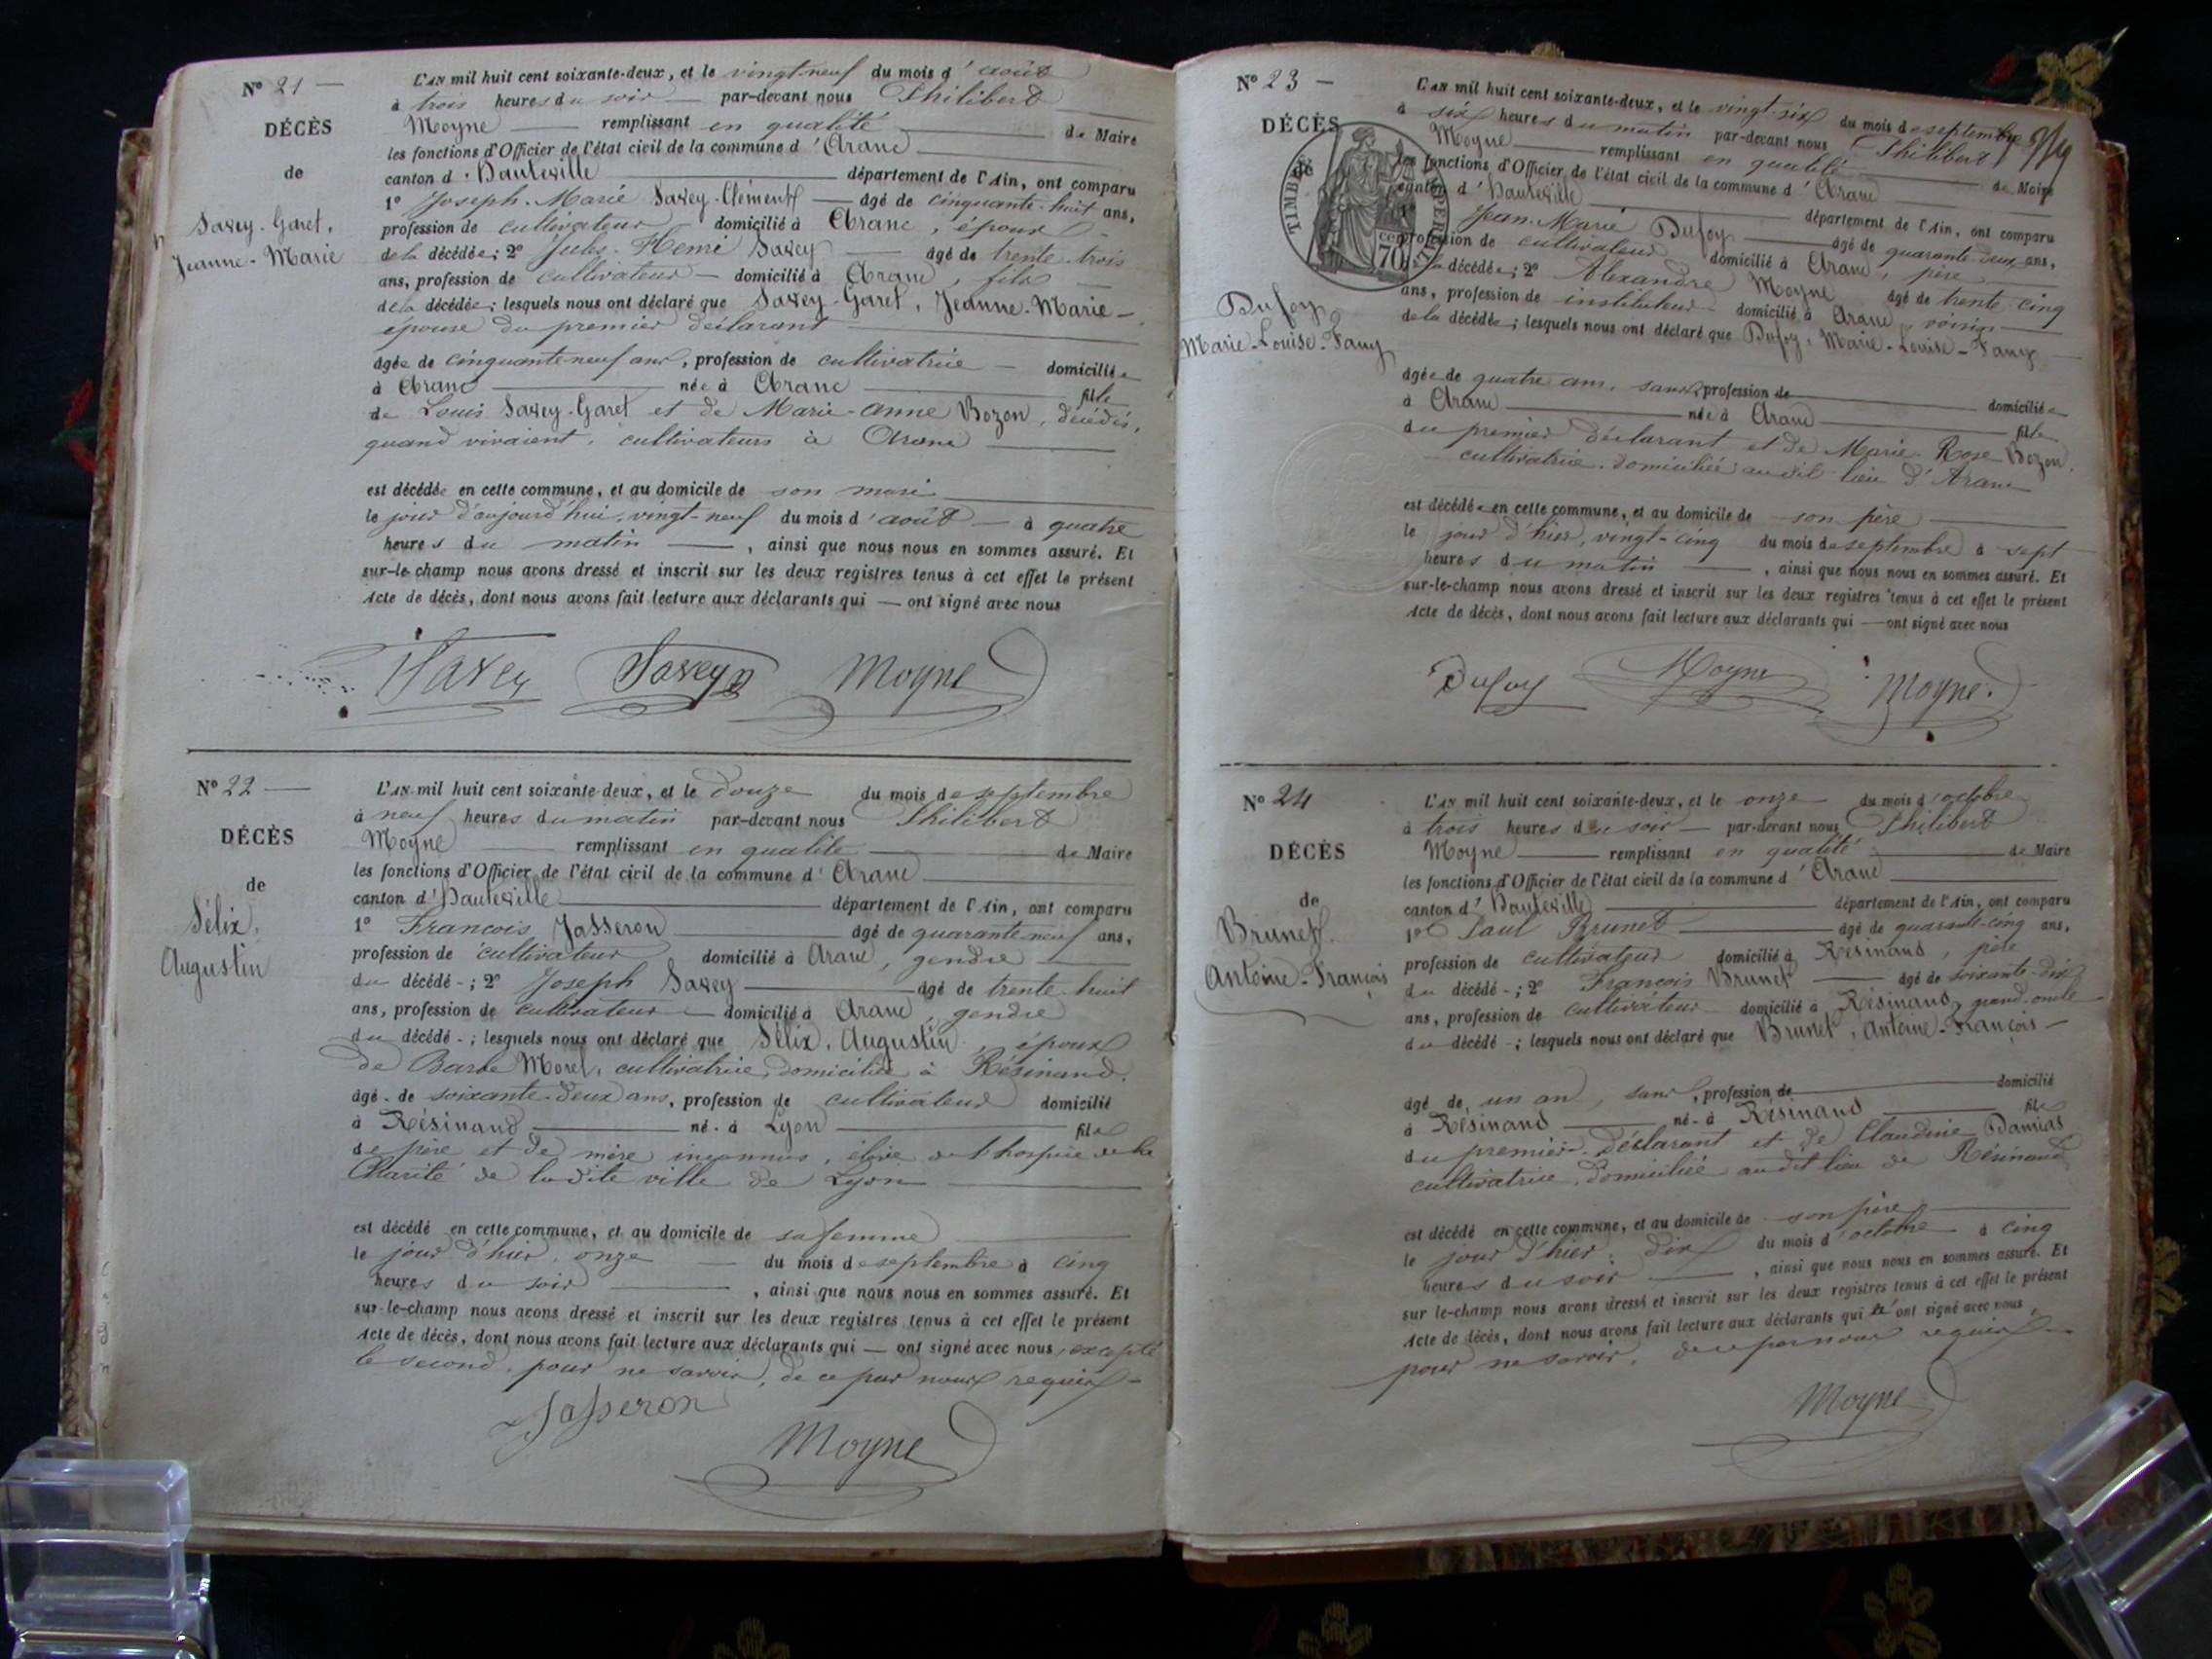 N° 21 —
DÉCÈS
de
Savey-Garet,
Jeanne-Marie
L'AN mil huit cent soixante-deux, et le vingt-neuf du mois d'août
à trois heures du soir par-devant nous Philibert
Moyne remplissant en qualité de Maire
les fonctions d'Officier de l'état civil de la commune d'Aranc
canton d'Hauteville département de l'Ain, ont comparu
1° Joseph-Marie Savey-Clément âgé de cinquante-huit ans,
profession de cultivateur domicilié à Aranc, époux
de la décédée; 2° Jules-Henri Savey âgé de trente-trois
ans, profession de cultivateur domicilié à Aranc, fils
de la décédée; lesquels nous ont déclaré que Savey-Garet, Jeanne-Marie
épouse du premier déclarant
âgée de cinquante-neuf ans, profession de cultivatrice domiciliée
à Aranc née à Aranc fille
de Louis Savey-Garet et de Marie-Anne Bozon, décédés,
quand vivaient, cultivateurs à Aranc
est décédée en cette commune, et au domicile de son mari
le jour d'aujourd'hui, vingt-neuf du mois d'août à quatre
heures du matin, ainsi que nous nous en sommes assuré. Et
sur-le-champ nous avons dressé et inscrit sur les deux registres tenus à cet effet le présent
Acte de décès, dont nous avons fait lecture aux déclarants qui — ont signé avec nous
Savey Savey Moyne
N° 22 —
DÉCÈS
de
Félix,
Augustin
L'AN mil huit cent soixante-deux, et le douze du mois de septembre
à neuf heures du matin par-devant nous Philibert
Moyne remplissant en qualité de Maire
les fonctions d'Officier de l'état civil de la commune d'Aranc
canton d'Hauteville département de l'Ain, ont comparu
1° François Jasseron âgé de quarante-neuf ans,
profession de cultivateur domicilié à Aranc, gendre
du décédé; 2° Joseph Savey âgé de trente-huit
ans, profession de cultivateur domicilié à Aranc, gendre
du décédé; lesquels nous ont déclaré que Félix, Augustin, époux
de Barbe Morel, cultivatrice, domiciliée à Résinand.
âgé de soixante-deux ans, profession de cultivateur domicilié
à Résinand né à Lyon fils
de père et de mère inconnus, élève de l'hospice de la
Charité de la dite ville de Lyon
est décédé en cette commune, et au domicile de sa femme
le jour d'hier, onze du mois de septembre à cinq
heures du soir, ainsi que nous nous en sommes assuré. Et
sur-le-champ nous avons dressé et inscrit sur les deux registres tenus à cet effet le présent
Acte de décès, dont nous avons fait lecture aux déclarants qui — ont signé avec nous, excepté
le second, pour ne savoir, de ce par nous requis
Jasseron
Moyne
N° 23 —
DÉCÈS
de
TIMBRE IMPÉRIAL
70
Dufoy,
Marie-Louise-Fany
L'AN mil huit cent soixante-deux, et le vingt-six du mois de septembre
à six heures du matin par-devant nous Philibert
Moyne remplissant en qualité de Maire
les fonctions d'Officier de l'état civil de la commune d'Aranc
canton d'Hauteville département de l'Ain, ont comparu
Jean-Marie Dufoy âgé de quarante-deux ans,
profession de cultivateur domicilié à Aranc, père
décédée; 2° Alexandre Moyne âgé de trente-cinq
ans, profession de instituteur domicilié à Aranc, voisin
de la décédée; lesquels nous ont déclaré que Dufoy, Marie-Louise-Fany
âgée de quatre ans, sans profession de domiciliée
à Aranc née à Aranc fille
du premier déclarant et de Marie-Rose Bozon,
cultivatrice, domiciliée au dit lieu d'Aranc
est décédée en cette commune, et au domicile de son père
le jour d'hier, vingt-cinq du mois de septembre à sept
heures du matin, ainsi que nous nous en sommes assuré. Et
sur-le-champ nous avons dressé et inscrit sur les deux registres tenus à cet effet le présent
Acte de décès, dont nous avons fait lecture aux déclarants qui — ont signé avec nous
Dufoy Moyne Moyne.
N° 24
DÉCÈS
de
Brunet,
Antoine-François
L'AN mil huit cent soixante-deux, et le onze du mois d'octobre
à trois heures du soir par-devant nous Philibert
Moyne remplissant en qualité de Maire
les fonctions d'Officier de l'état civil de la commune d'Aranc
canton d'Hauteville département de l'Ain, ont comparu
1° Paul Brunet âgé de quarante-cinq ans,
profession de cultivateur domicilié à Résinand, père
du décédé; 2° François Brunet âgé de soixante-dix
ans, profession de cultivateur domicilié à Résinand, grand-oncle
du décédé; lesquels nous ont déclaré que Brunet, Antoine-François
âgé de un an, sans profession de domicilié
à Résinand né à Résinand fils
du premier déclarant et de Claudine Damias
cultivatrice, domiciliée audit lieu de Résinand
est décédé en cette commune, et au domicile de son père
le jour d'hier, dix du mois d'octobre à cinq
heures du soir, ainsi que nous nous en sommes assuré. Et
sur le-champ nous avons dressé et inscrit sur les deux registres tenus à cet effet le présent
Acte de décès, dont nous avons fait lecture aux déclarants qui n'ont signé avec nous,
pour ne savoir, de ce par nous requis
Moyne